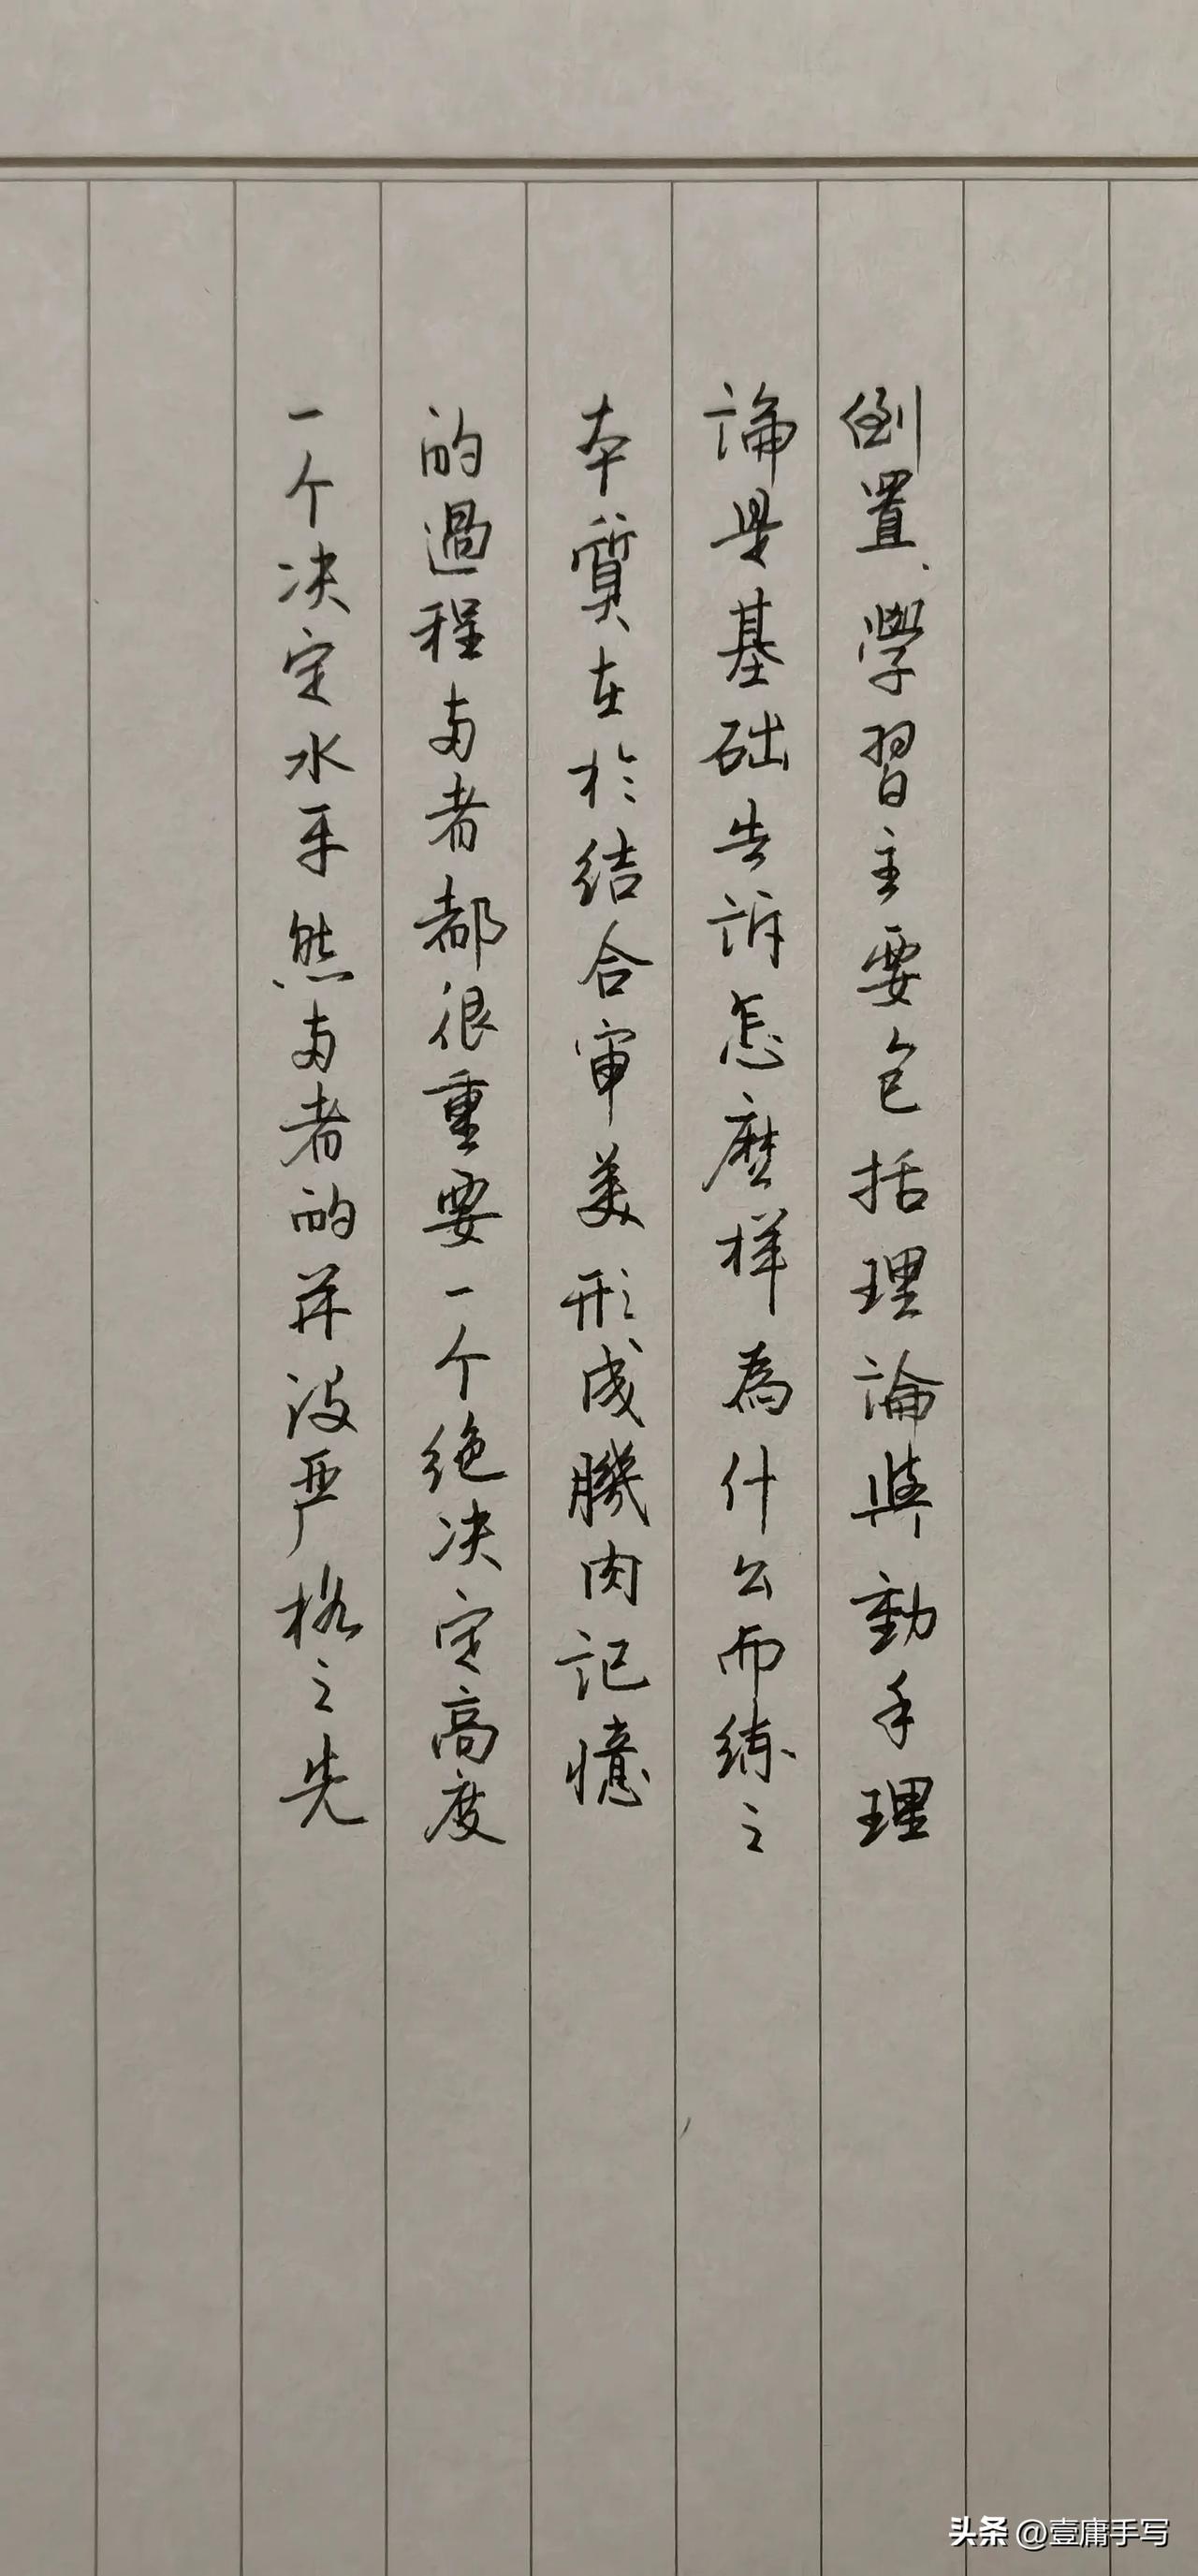 倒置、學習主要包括理論與動手理
論是基础告诉怎麼样為什么而练之
本質在於结合审美形成機肉记憶
的過程两者都很重要一个绝决定高度
一个决定水平然两者的并没严格之先
头条 @壹庸手写